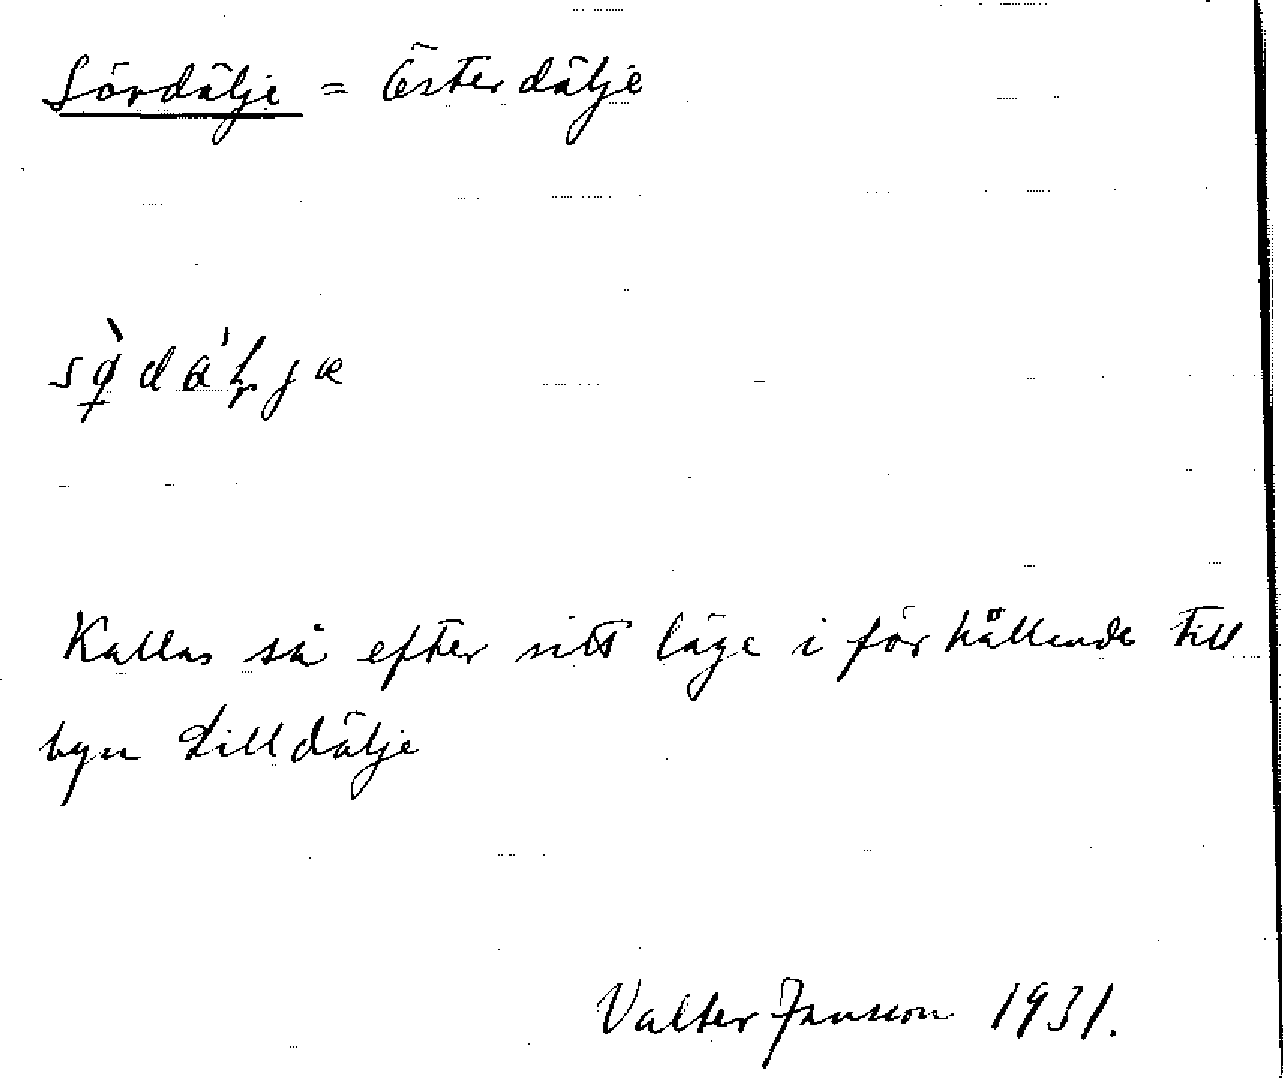 Sördälje = Österdälje
Kallas så efter sitt läge i förhållande till
byn Lilldälje
Valter Jansson 1931.